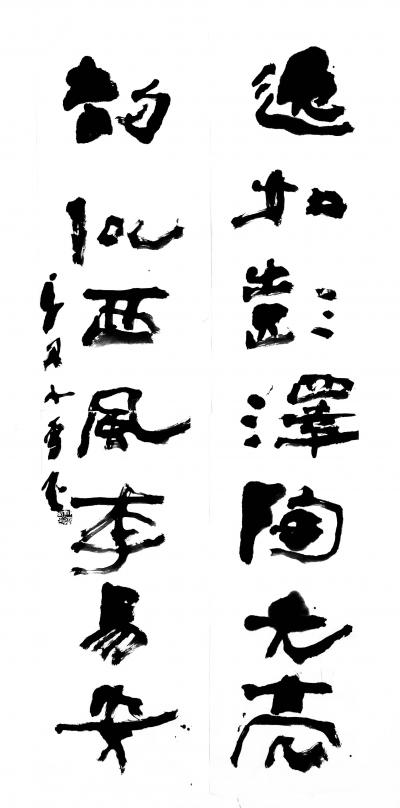 逸如彭澤陶元亮
韵似西風李易安